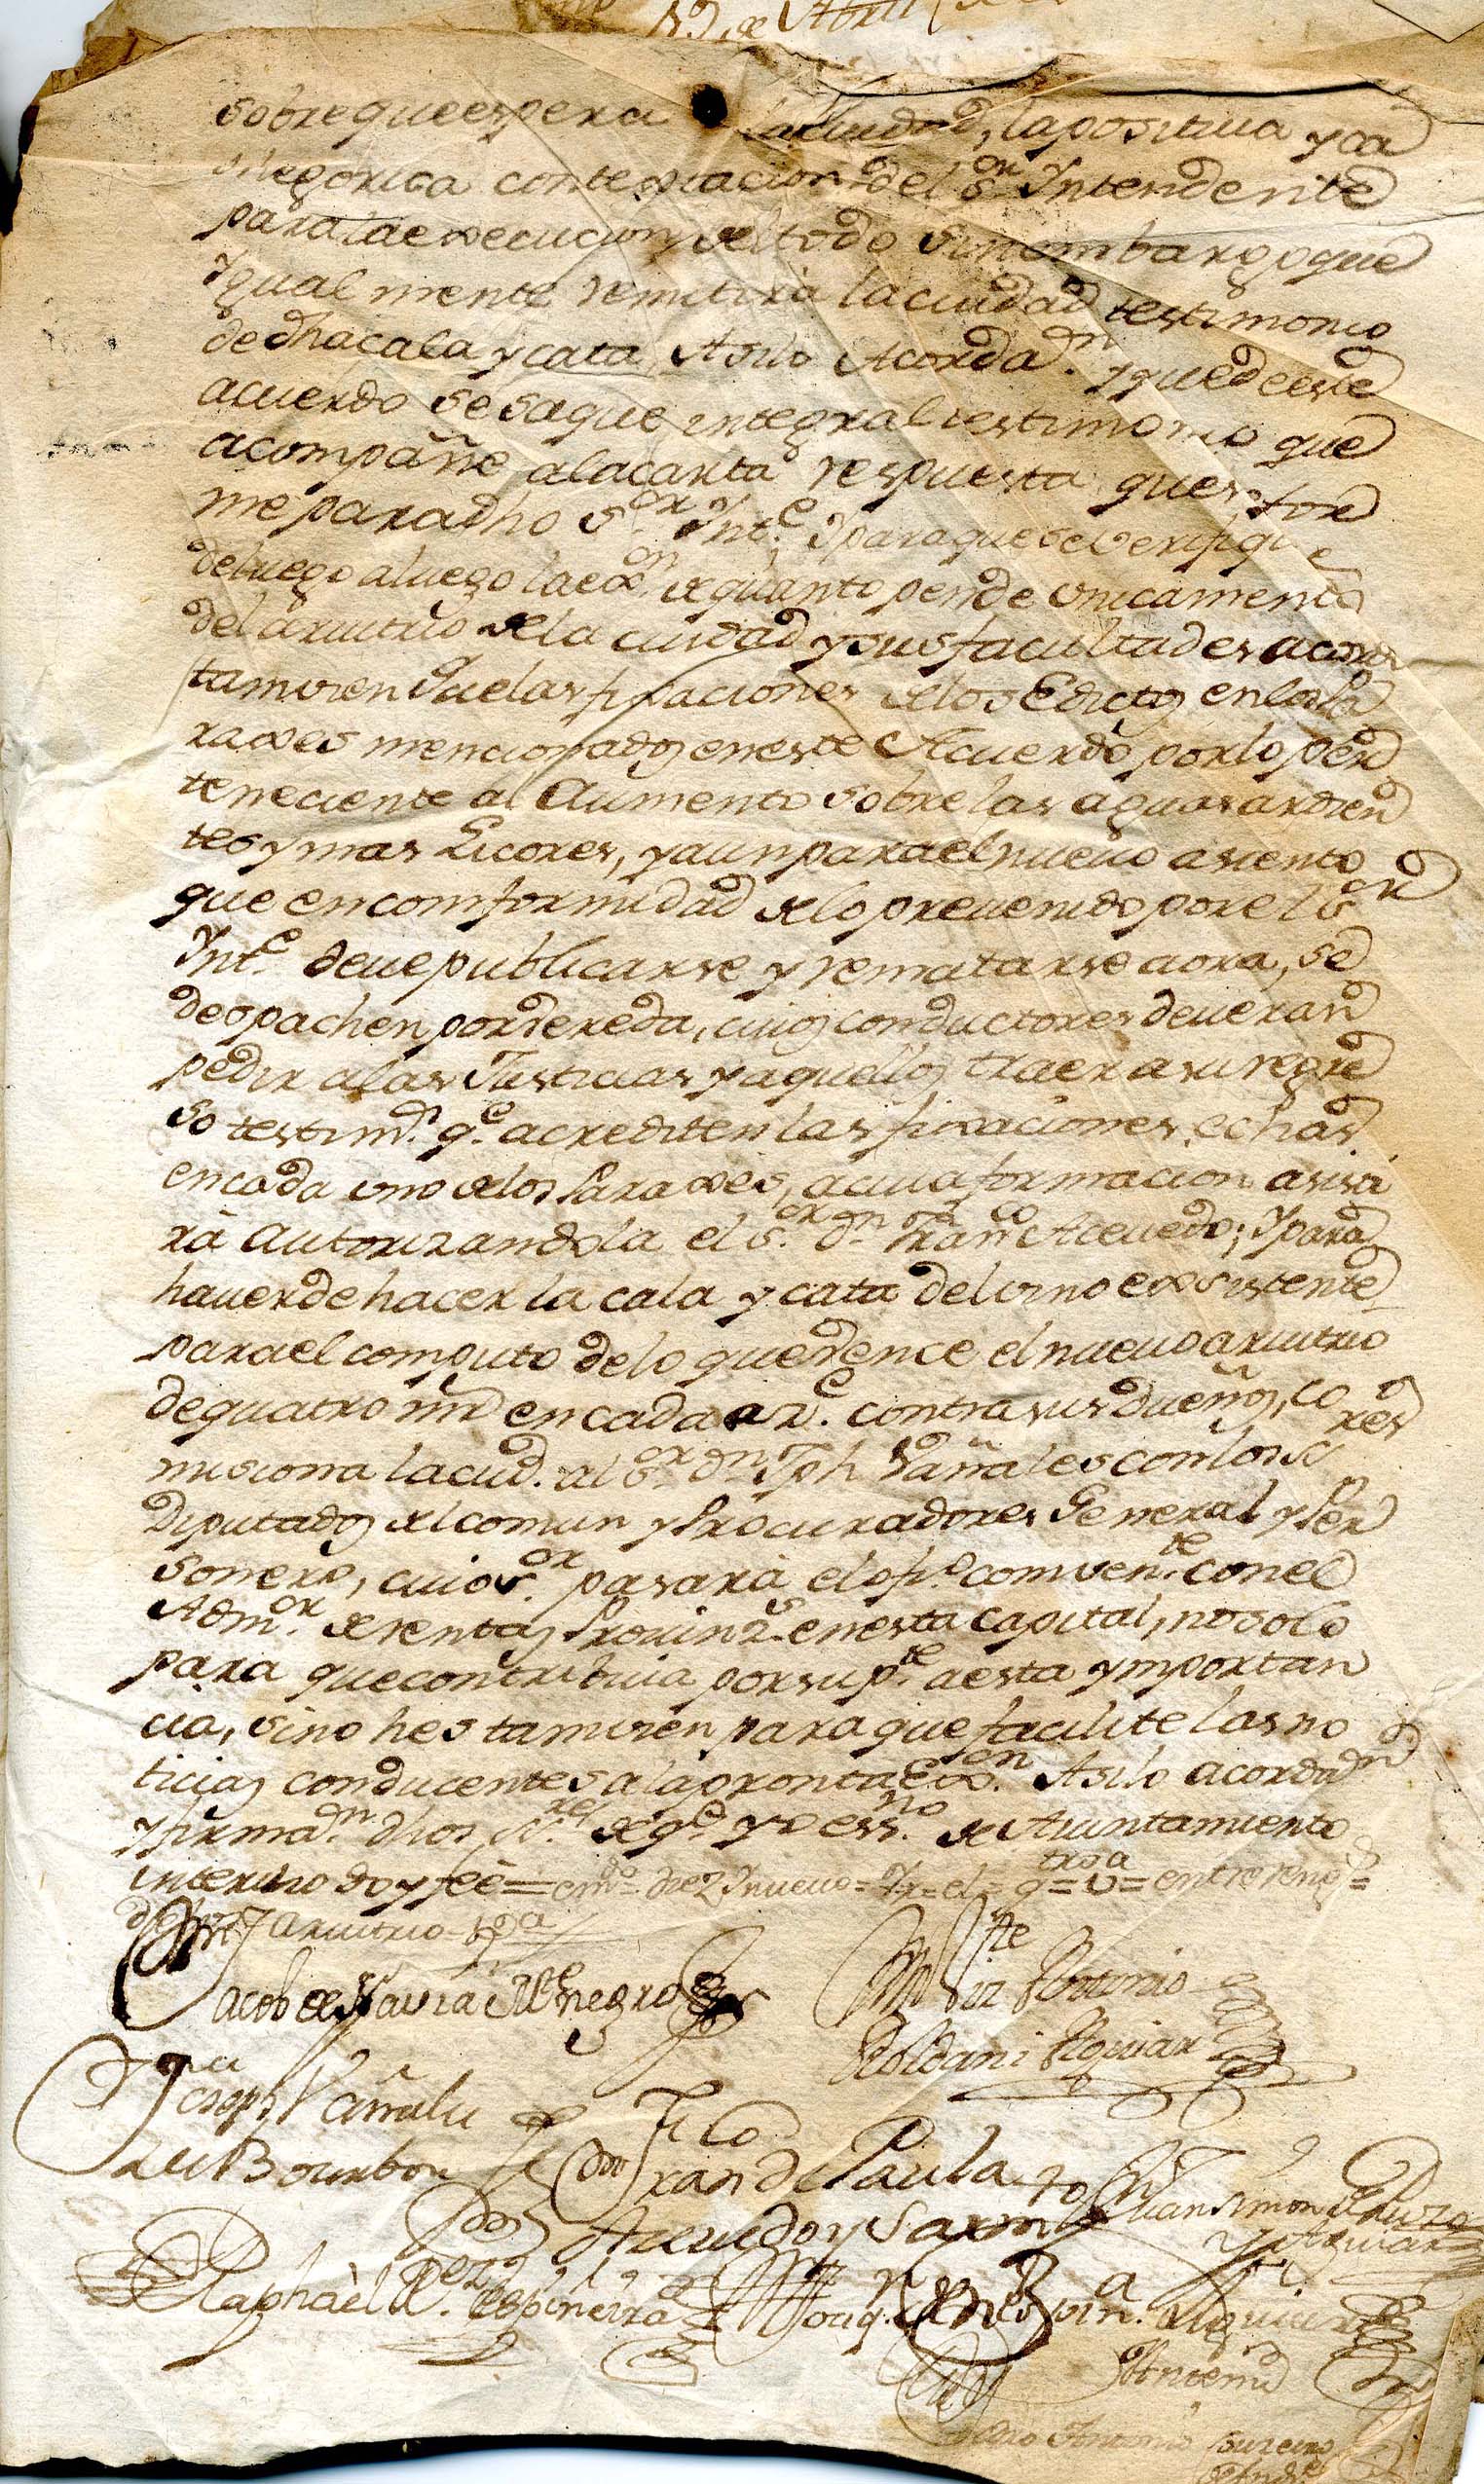 de Abril
sobre que espera la ciudad, la positiua y ca
thegorica contextacion del S.or Yntendente
para la execucion del todo sin embargo que
Ygualmente remitirà la ciudad testimonio
de dha cala y cata Asilo Acorda.n y que de este
acuerdo se saque integral testimonio que
acompañe a la carta respuesta que se for
me para dho S.or Ynt.e Y para que se verifique
de luego a luego la ex.on de quanto pende vnicamente
del aruitrio de la ciudad y sus facultades acordar
tamvien que las fixaciones de los Edictos en los Pa
raxes mencionados en este Acuerdo por lo per
teneciente al Aumento sobre las aguas ardien
tes y mas Licores, y aun para el nueuo asiento
que en comformidad de lo preuenido por el S.or
Ynt.e deue publicarse y rematarse aora, se
despachen por vereda, cuios conductores deueran
pedir a las Justicias y aquellos traer a su regre
so testim.os q.e acrediten las fixaciones echas
en cada vno de los Paraxes, a cuia formacion asisti
rà autorizandola el S.or d.n Fran.co Acevedo; Y para
hauer de hacer la cala y cata del vino exsistente
para el computo de lo que devengue el nueuo aruitrio
de quatro mrs en cada az.e contra sus dueños, co
misiona la ciud. al S.or d.n Jph Vañales con los S.res
Diputados del comun y Procuradores General y Per
sonero, cuio S.or pasarà el ofi.o comven.te con el
Adm.or de rentas Prouinz.s en esta capital, no solo
para que contribuia por su p.te a esta ymportan
cia, sino hes tamvien para que facilite las no
ticias conducentes a la pronta ex.on Asilo acorda.n
y firma.n dhos S.res de q.e yo ess.no de Aiuntamiento
interino doy feè = em.do diez Y nueuo = = el = q = v = entre reng.s =
aruitrio V.a
Jacob de Navia Mnegro
Viz.te Antonio
Roldan i Aguiar
Joseph Vañales
de Bourbon
Fran.co de Paula
Acevedo y Sarm.to
Juan Simon de
y Aguiar
Raphaèl L.opez Espiñeira
Joaq.n
Antemi
Antonio